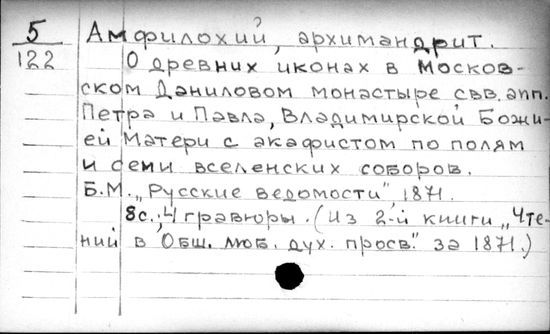 5 Амфилохий, архимандрит.
122 О древних иконах в Москов-
ском Даниловом монастыре свв. апп.
Петра и Павла, Владимирской Божи-
ей Матери с акафистом по полям
и семи вселенских соборов.
Б.М. „Русские ведомости", 1871.
8с.; 4 гравюры. (Из 2-й книги „Чте-
ний в Общ. люб. дух. просв." за 1871.)